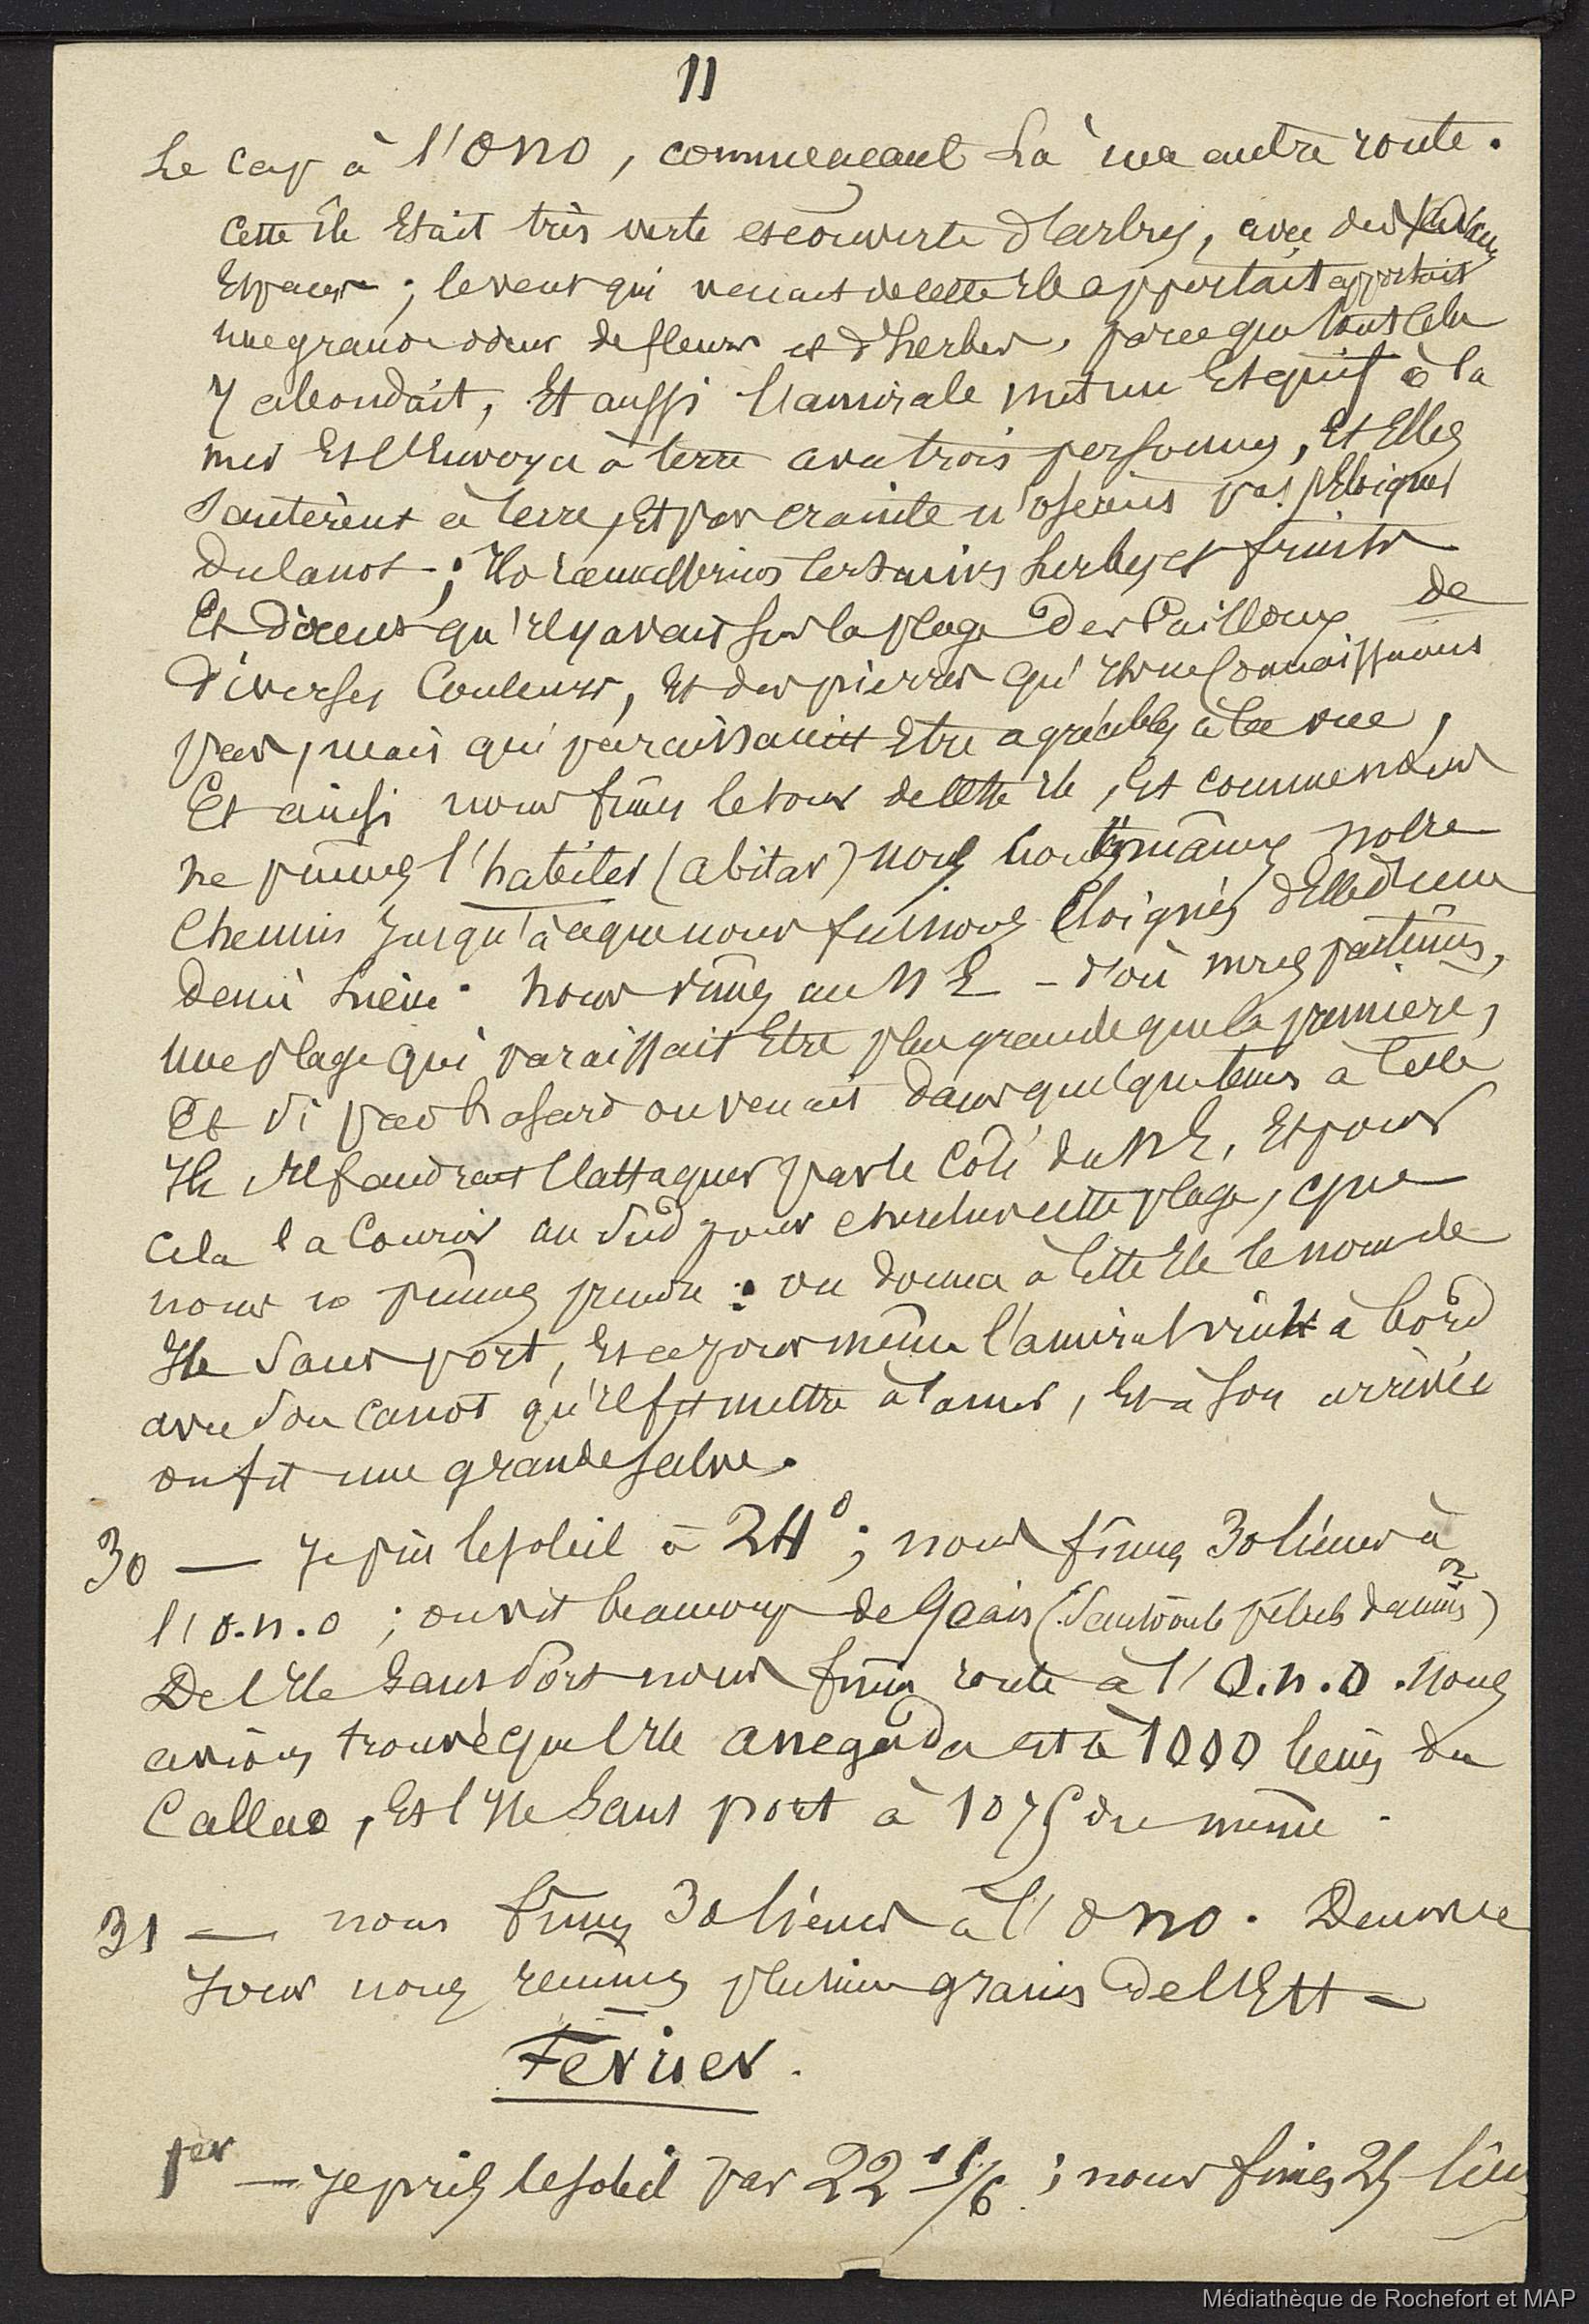 11
Le cap à l'ONO, commençant là une autre route.
Cette île était très verte et couverte d'arbres, avec des
espaces ; le vent qui venait de cette île apportait apportait
une grande odeur de fleurs et d'herbes, parce que tout cela
y abondait, Et aussi l'amirale mit un Esquif à la
mer Et l'Envoya à terre avec trois personnes, Et Elles
sautèrent à terre, Et par crainte n'osèrent pas s'Eloigner
du canot ; Ils recueillirent certaines herbes et fruits
Et dirent qu'il y avait sur la plage des Cailloux de
diverses Couleurs, Et des pierres qu'ils ne connaissaient
pas, mais qui paraissaient Etre agréables à la vue,
Et ainsi nous fîmes le tour de cette île, Et comme nous
ne pûmes l'habiter (abitar) nous continuâmes notre
Chemin jusqu'à ce que nous fussions Eloignés d'Elle d'une
demi lieue. Nous vîmes au N E - d'où nous partîmes,
une plage qui paraissait Etre plus grande que la première,
Et si par hasard on venait dans quelque temps à cette
Ile Il faudrait l'attaquer par le Côté du N E, Et pour
cela la Courir au Sud pour chercher cette plage, que
nous ne pûmes prendre : on donna à cette Ile le nom de
Ile Sans port, Et ce jour même l'amiral vint à bord
avec son canot qu'il fit mettre à la mer, Et à son arrivée
on fit une grande salve.
30 — Je pris le soleil à 24° ; nous fîmes 30 lieues à
l'O.N.O ; on vit beaucoup de Geais
De l'Ile Sans Port nous fîmes route à l'O.N.O. Nous
avions trouvé que l'Ile anegada est à 1000 lieues du
Callao, Et l'Ile Sans port à 1075 du même.
31 — nous fîmes 30 lieues à l'ONO. Dans ce
jour nous reçûmes plusieurs grains de l'Est -
Février.
1er — Je pris le soleil par 22 1/6 ; nous fîmes 25 lieues
Médiathèque de Rochefort et MAP